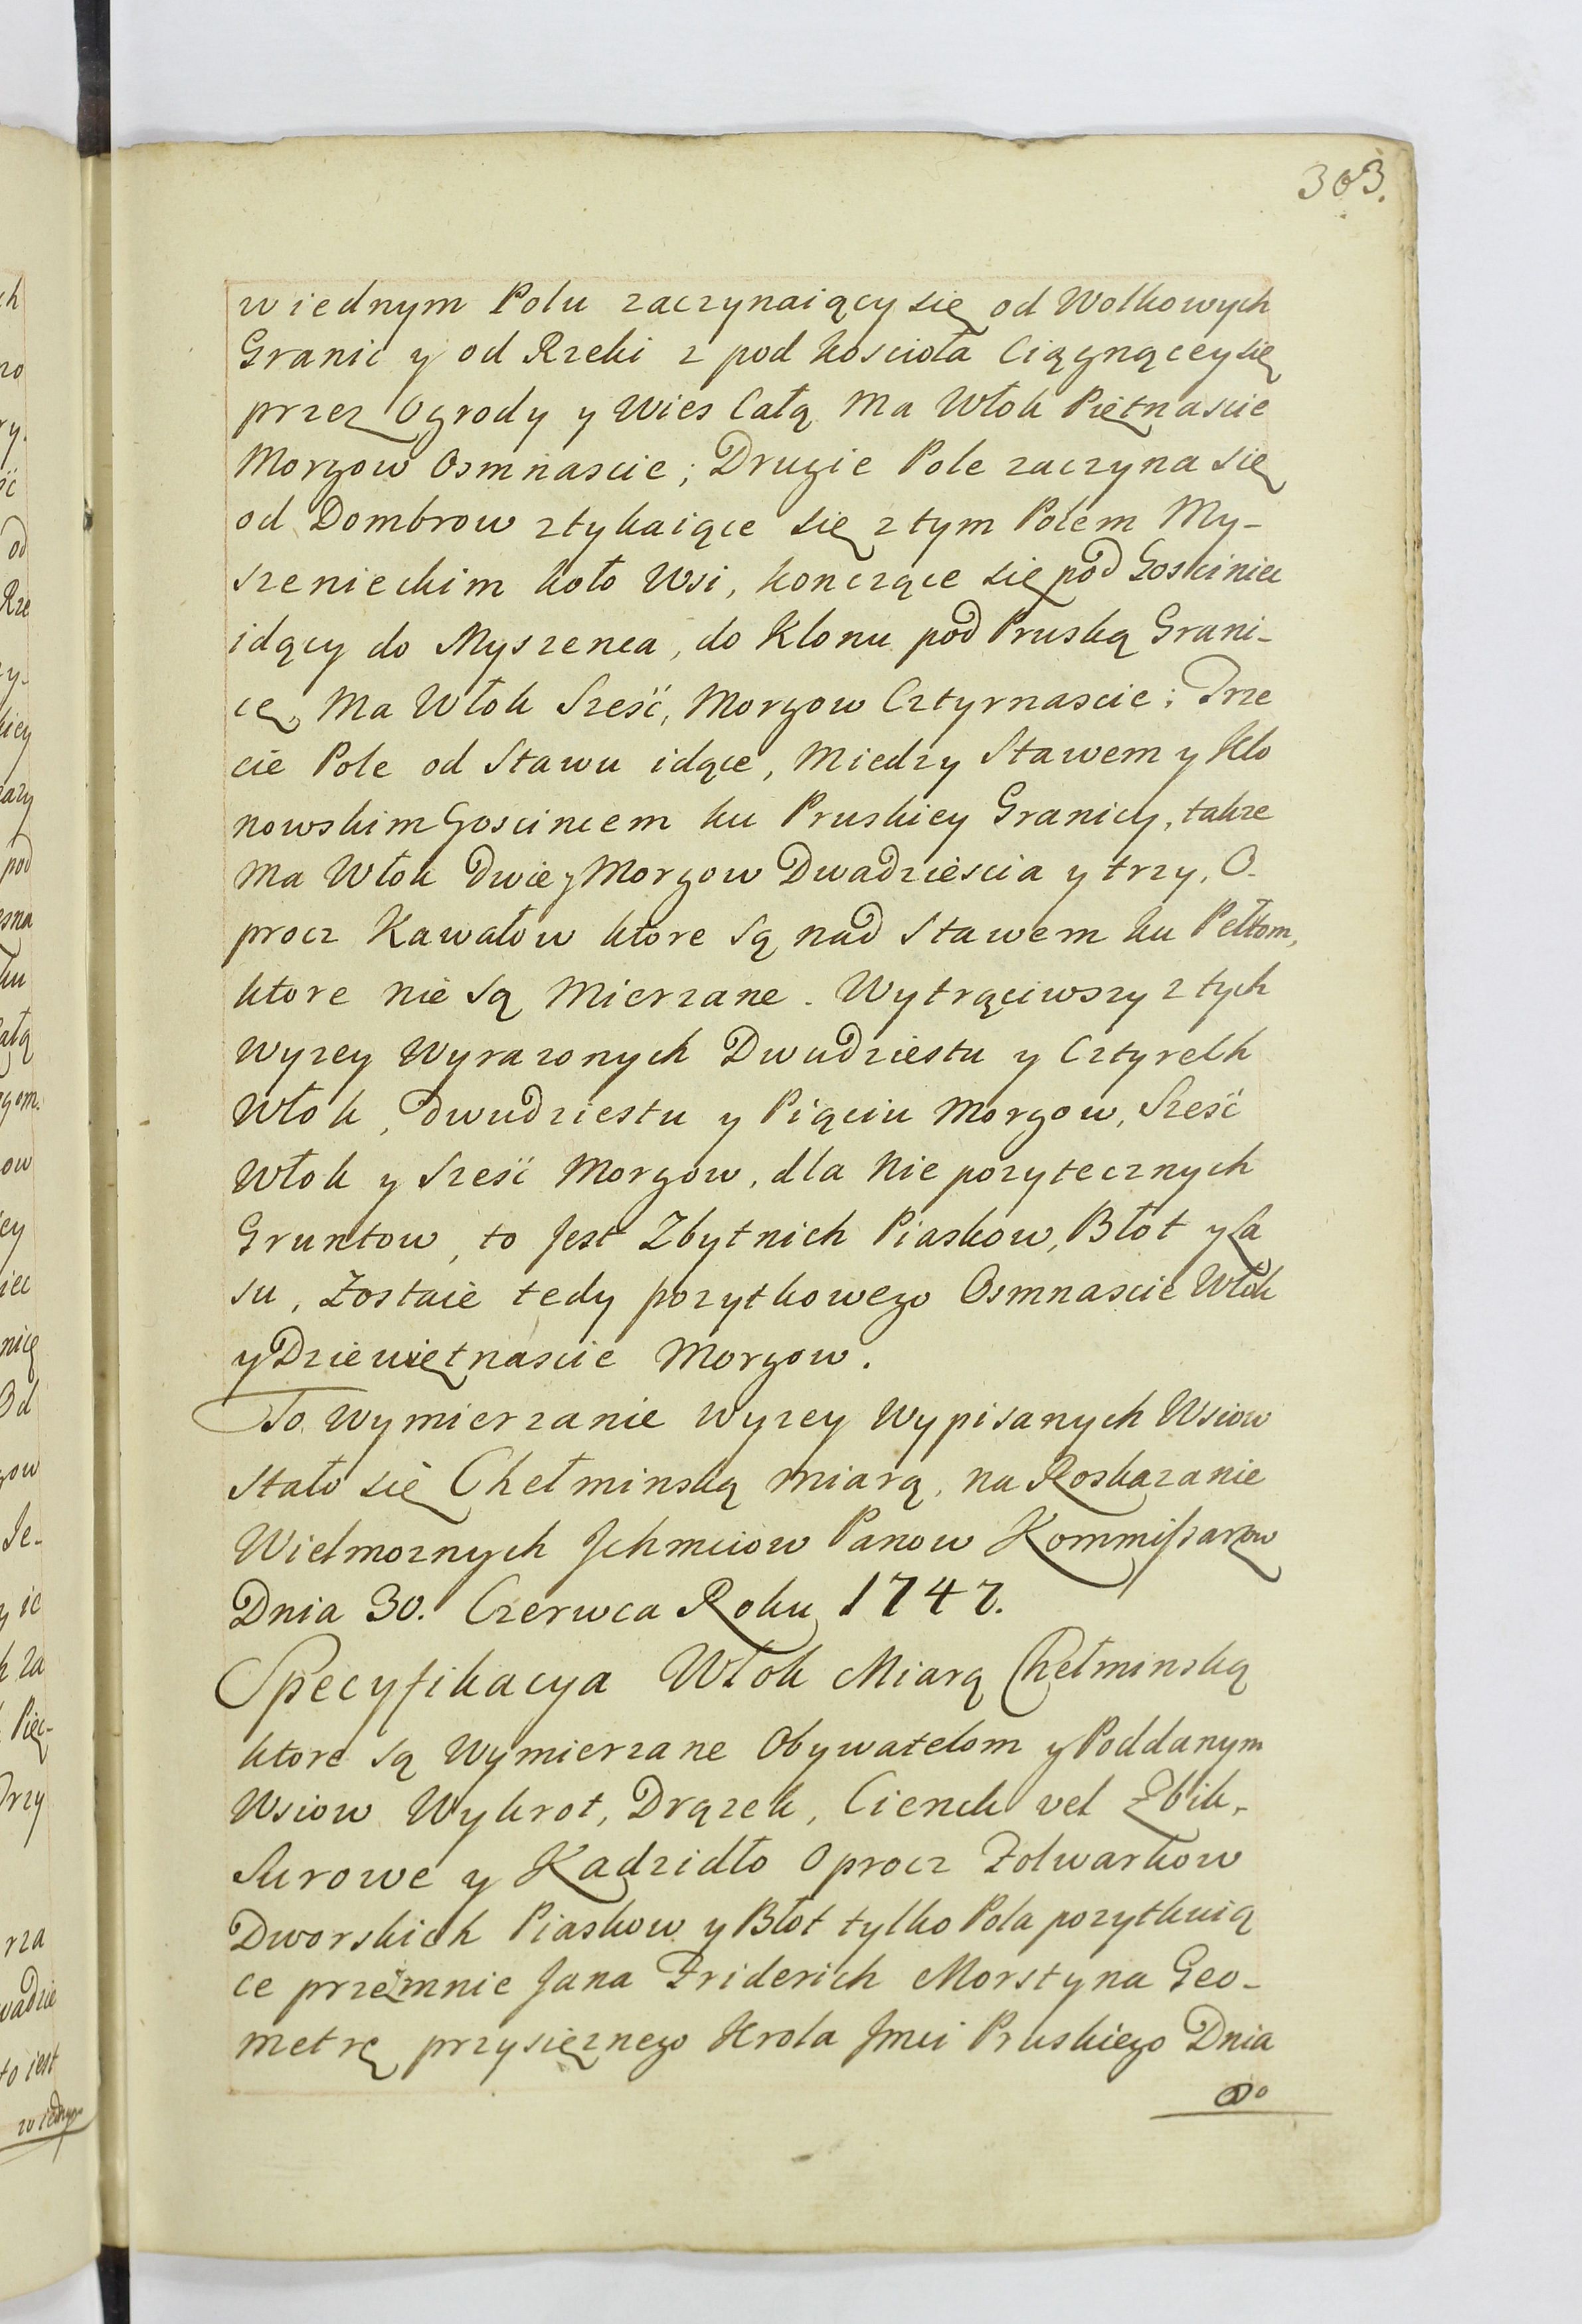 303.
w iednym Polu zaczynaiący się od Wolkowych
Granic y od Rzeki z pod kościoła Ciągnącey się
przez Ogrody y Wies Całą Ma Włok Piętnascie
Morgow Osmnascie; Drugie Pole zaczyna się
od Dombrow ztykaiące się z tym Polem My-
szenieckim koło Wsi, konczące się pod Gosciniec
idący do Myszenca, do Klonu pod Pruską Grani-
cę, Ma Włok Sześć, Morgow Cztyrnascie; Trze
cie Pole od Stawu idące, Miedzy Stawem y Klo
nowskim Goscincem ku Pruskiey Granicy, takze
Ma Włok Dwie y Morgow Dwadziescia y trzy, O-
procz Kawałow ktore są nad Stawem ku Pełtom,
ktore nie są Mierzane. Wytrąciwszy z tych
Wyzey Wyrazonych Dwudziestu y Cztyrech
Włok, Dwudziestu y Piąciu Morgow, Sześć
Włok y Sześć Morgow, dla Nie pozytecznych
Gruntow, to Jest Zbytnich Piaskow, Błot y La
su, Zostaie tedy pozytkowego Osmnascie Włok
y Dziewiętnascie Morgow.
To Wymierzanie Wyzey Wypisanych Wsiow
Stało się Chełminską miarą, na Roskazanie
Wielmoznych Jchmciow Panow Kommissarzow
Dnia 30. Czerwca Roku 1747.
Specyfikacya Włok Miarą Chełminską
ktore są Wymierzane Obywatelom y Poddanym
Wsiow Wykrot, Drązek, Cienck vel Zbik,
Surowe y Kadzidło Oprocz Folwarkow
Dworskich Piaskow y Błot tylko Pola pozytkuią
ce przezmnie Jana Friderich Morstyna Geo-
metrę przysięznego Krola Jmci Pruskiego Dnia